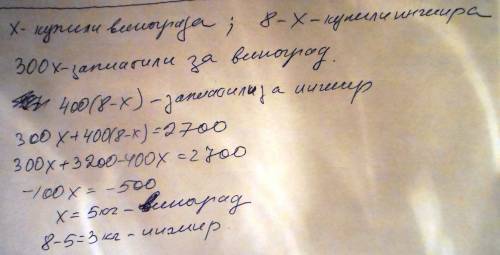 х - купили винограда ; 8 - х - купили инжира
300х - заплатили за виноград.
400(8-х) - заплатили за инжир
300х + 400(8-х) = 2700
300х + 3200 - 400х = 2700
-100х = -500
х = 5кг - виноград
8-5=3кг - инжир.